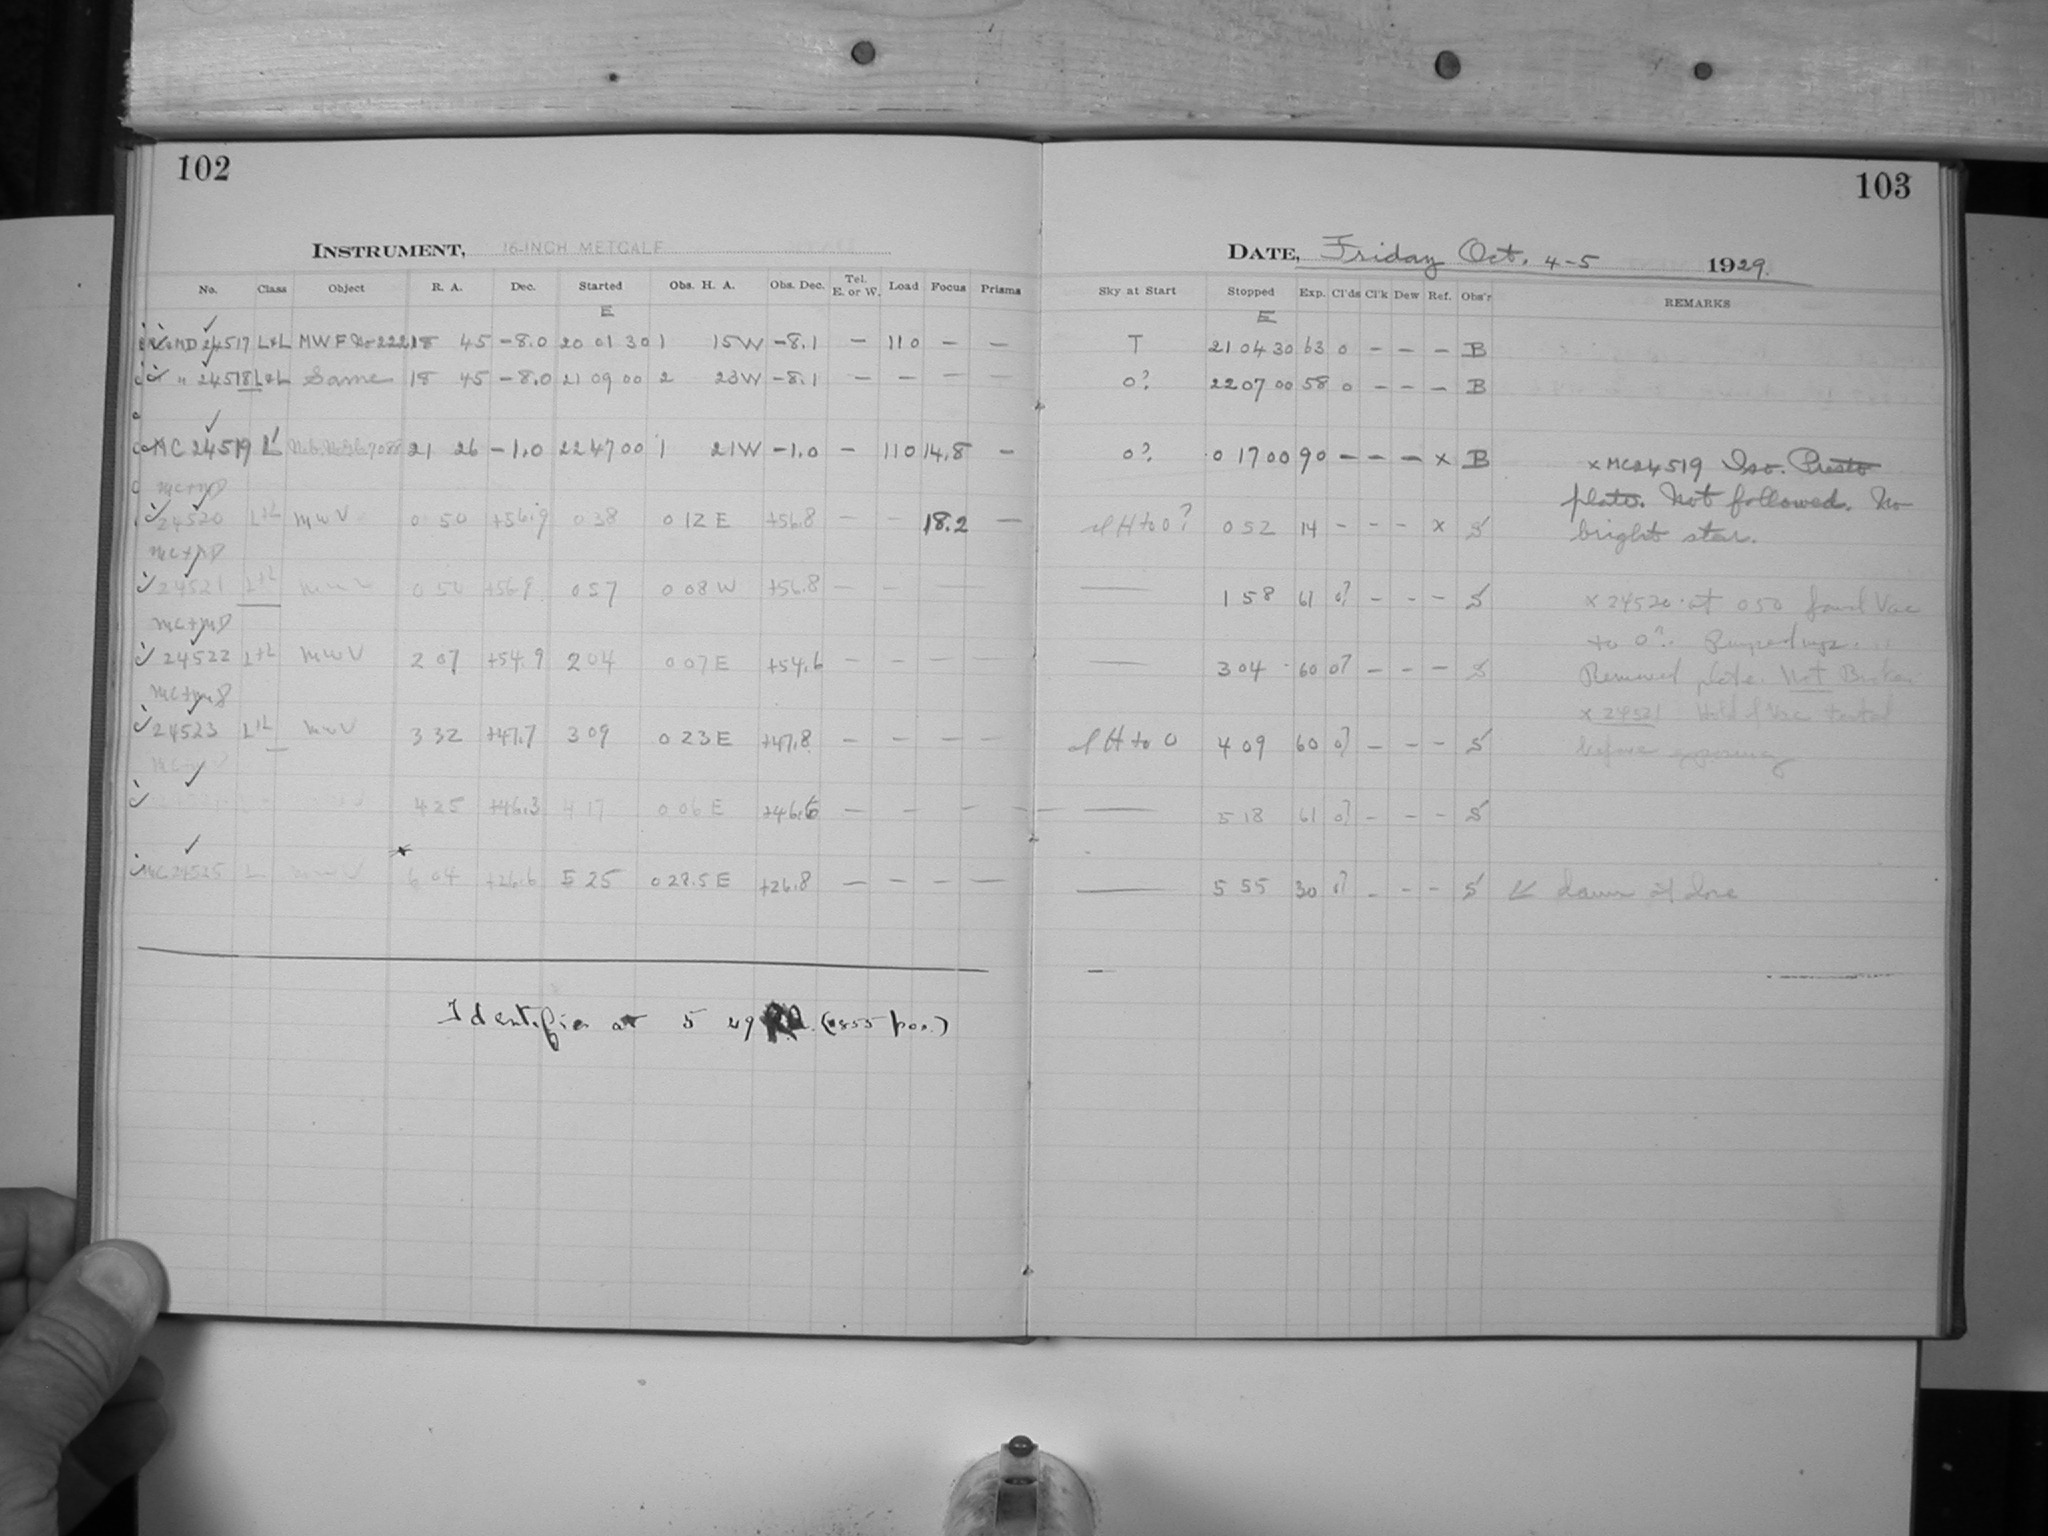 102
103
INSTRUMENT, 16-INCH METCALF
DATE, Friday Oct. 4-5 1929.
No. Class Object R. A. Dec. Started Obs. H. A. Obs. Dec. Tel. E. or W. Load Focus Prisms Sky at Start Stopped Exp. Cl'ds Cl'k Dew Ref. Obs'r REMARKS
E E
MD 24517 L+L MWF No 222 18 45 -8.0 20 01 30 1 15W -8.1 — 110 — — T 21 04 30 63 0 — — — B
" 24518 L+L Same 18 45 -8.0 21 09 00 2 23W -8.1 — — — — 0? 22 07 00 58 0 — — — B
MC 24519 L 21 26 -1.0 22 47 00 1 21W -1.0 — 110 14.8 — 0? 0 17 00 90 — — — x B
x MC24519 Iso. Presto
plate. Not followed. No
bright star.
MC+MD
24520 L+L MWV 0 50 +56.9 0 38 0 12 E +56.8 — — 18.2 — H to 0? 0 52 14 - - - x S
MC+MD
24521 L+L MWV 0 50 +56.9 0 57 0 08 W +56.8 — — —— 1 58 61 0? - - - S
x 24520 at 0 50 found Vac
to 0?.
MC+MD
24522 L+L MWV 2 07 +54.9 2 04 0 07 E +54.6 — — — — —— 3 04 60 0? - - - S
Removed plate. Not Broken
x 24521 Hold of Vac tested
before exposing
24523 L+L MWV 3 32 +47.7 3 09 0 23 E +47.8 — — — — H to 0 4 09 60 0? - - - S
4 25 +46.3 4 17 0 06 E +46.6 — — — — —— 5 18 61 0? - - - S
MC 24525 L MWV 6 04 +26.6 5 25 0 28.5 E +26.8 — — — — —— 5 55 30 0? - - - S dawn at close
Identifies at 5 49 (1855 pos.)